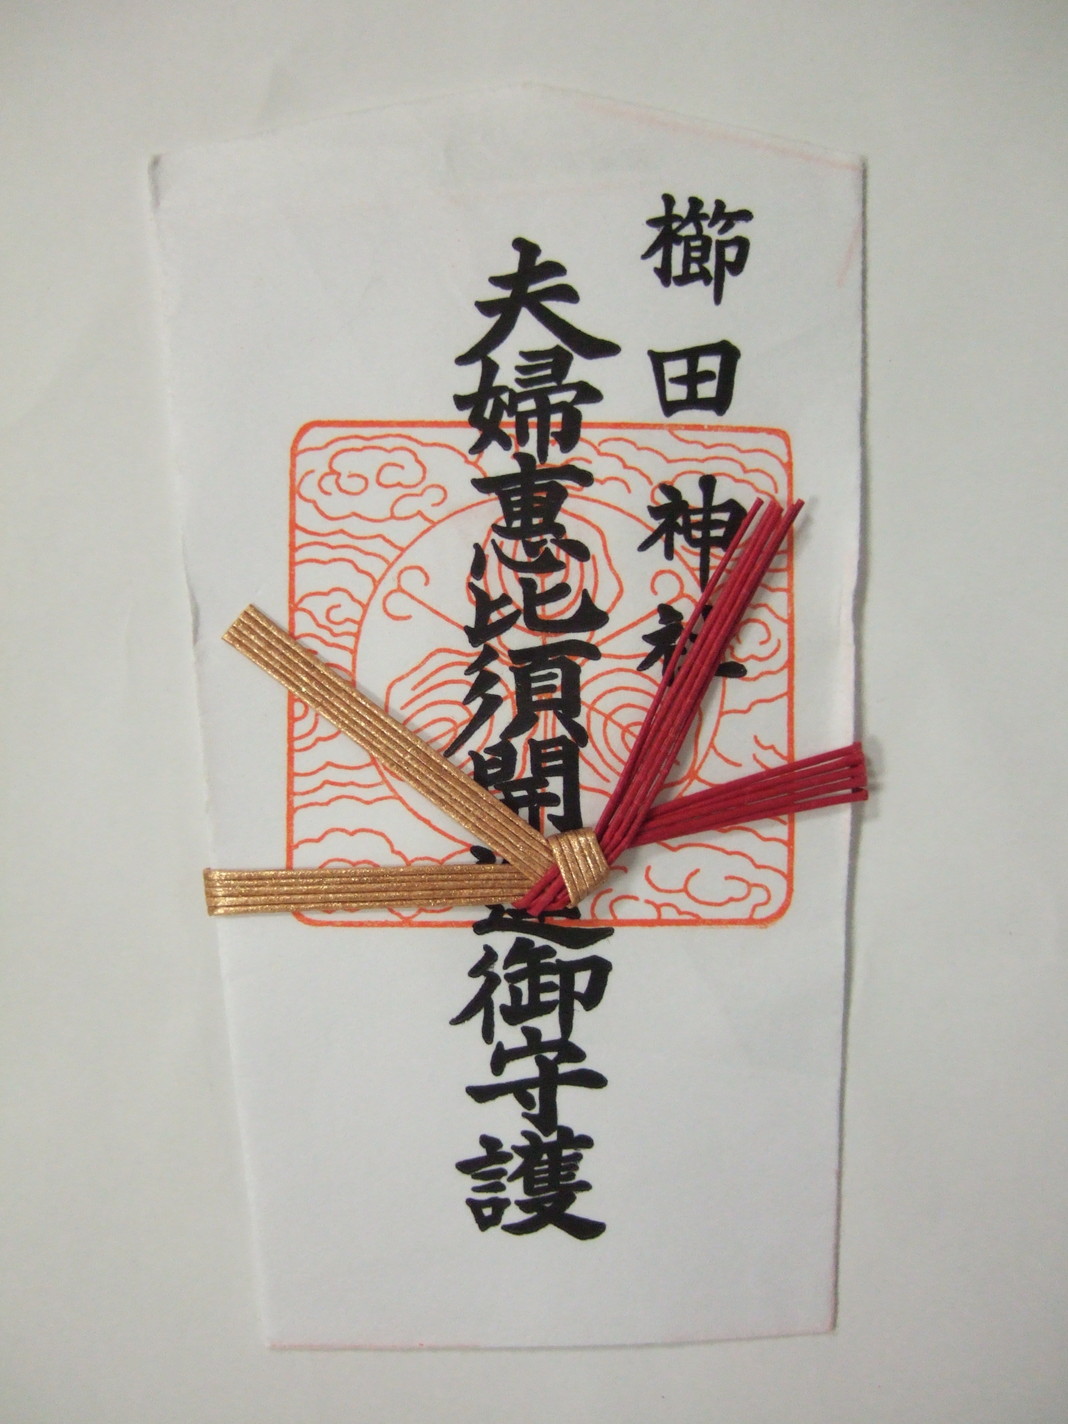 櫛田神社
夫婦惠比須開運御守護